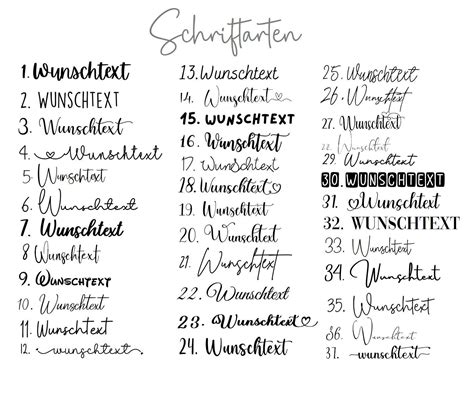 Schriftarten
1. Wunschtext
2. WUNSCHTEXT
3. Wunschtext
4. Wunschtext
5. Wunschtext
6. Wunschtext
7. Wunschtext
8 Wunschtext
9. WUNSCHTEXT
10. Wunschtext
11. Wunschtext
12. wunschtext
13. Wunschtext
14. Wunschtext
15. WUNSCHTEXT
16. Wunschtext
17. Wunschtext
18. Wunschtext
19. Wunschtext
20. Wunschtext
21. Wunschtext
22. Wunschtext
23. Wunschtext
24. Wunschtext
25. Wunschtext
26. Wunschtext
27. Wunschtext
28. Wunschtext
29. Wunschtext
30. WUNSCHTEXT
31. Wunschtext
32. WUNSCHTEXT
33. Wunschtext
34. Wunschtext
35. Wunschtext
36. Wunschtext
37. wunschtext